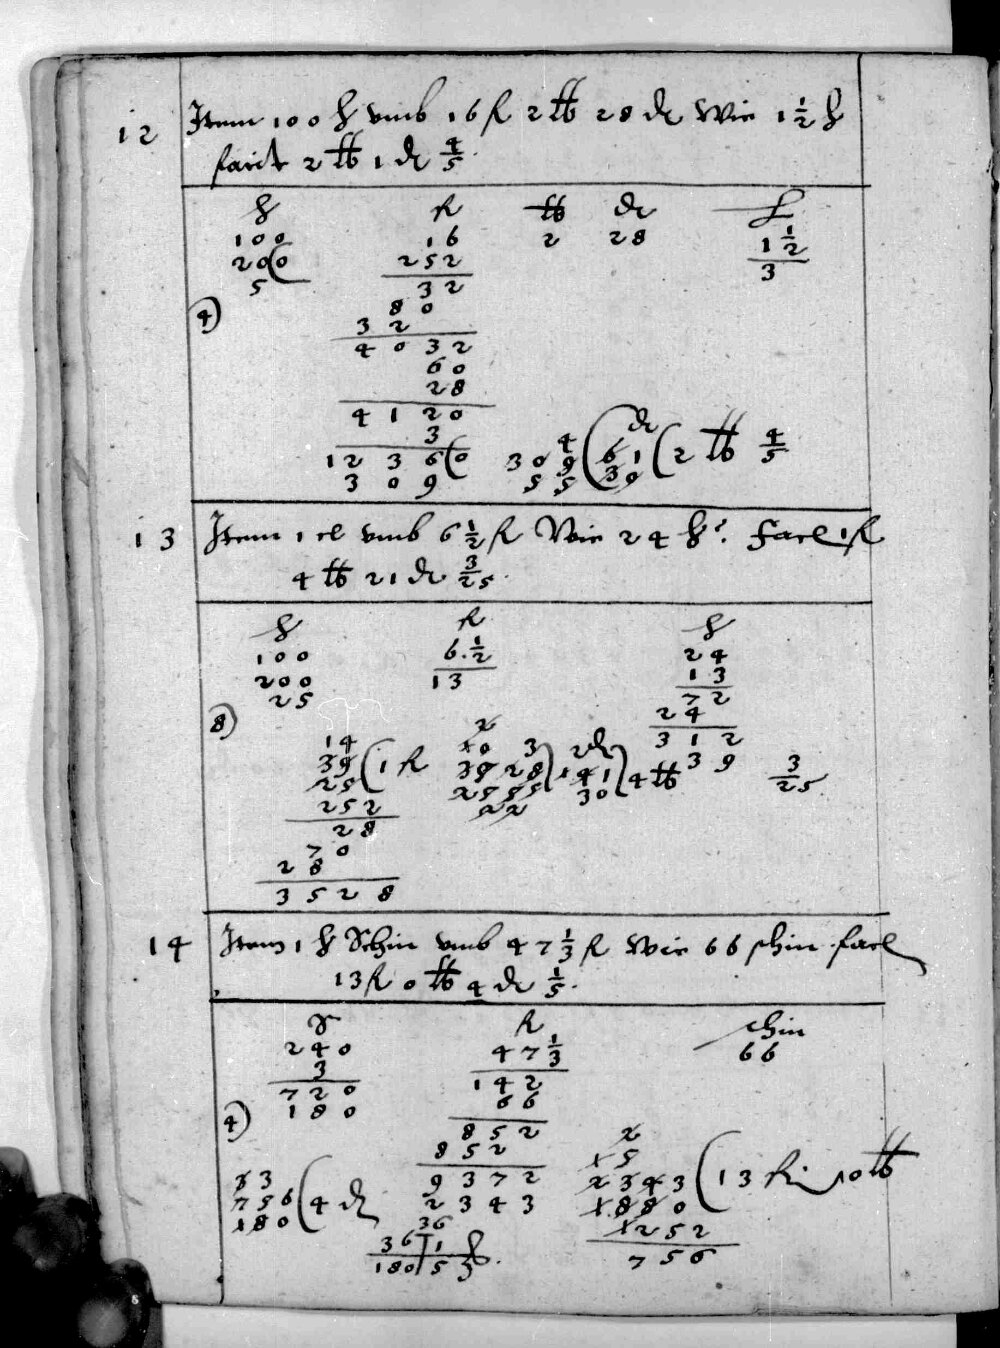 12 Item 100 ℔ vmb 16 fl 2 ß 28 d Wie 1 1/2 ℔
facit 2 ß 1 d 4/5
℔ fl ß d ℔
100 16 2 28 1 1/2
200 252 3
5 32
4) 80
32
4032
60
28
4120
3 4 d
12360 309 (61 (2 ß 4/5
309 55 30
13 Item 1 ct vmb 6 1/2 fl Wie 24 ℔? facl 1 fl
4 ß 21 d 3/25.
℔ fl ℔
100 6.1/2 24
200 13 13
25 72
8) 24
14 2 312
39 (1 fl 10 3 2 d 39 3/25
25 3528) 141) 4 ß
252 2555 30
28 22
70
28
3528
14 Item 1 ℔ Schin vmb 47 1/3 fl Wie 66 schin facl
13 fl 0 ß 4 d 1/5.
S fl schin
240 47 1/3 66
3
720 142
180 66
4) 852 2
852 15
33 9372 2343 (13 fl 0 ß
756 (4 d 2343 1880
180 36 1252
36 | 1 756
180 | 5